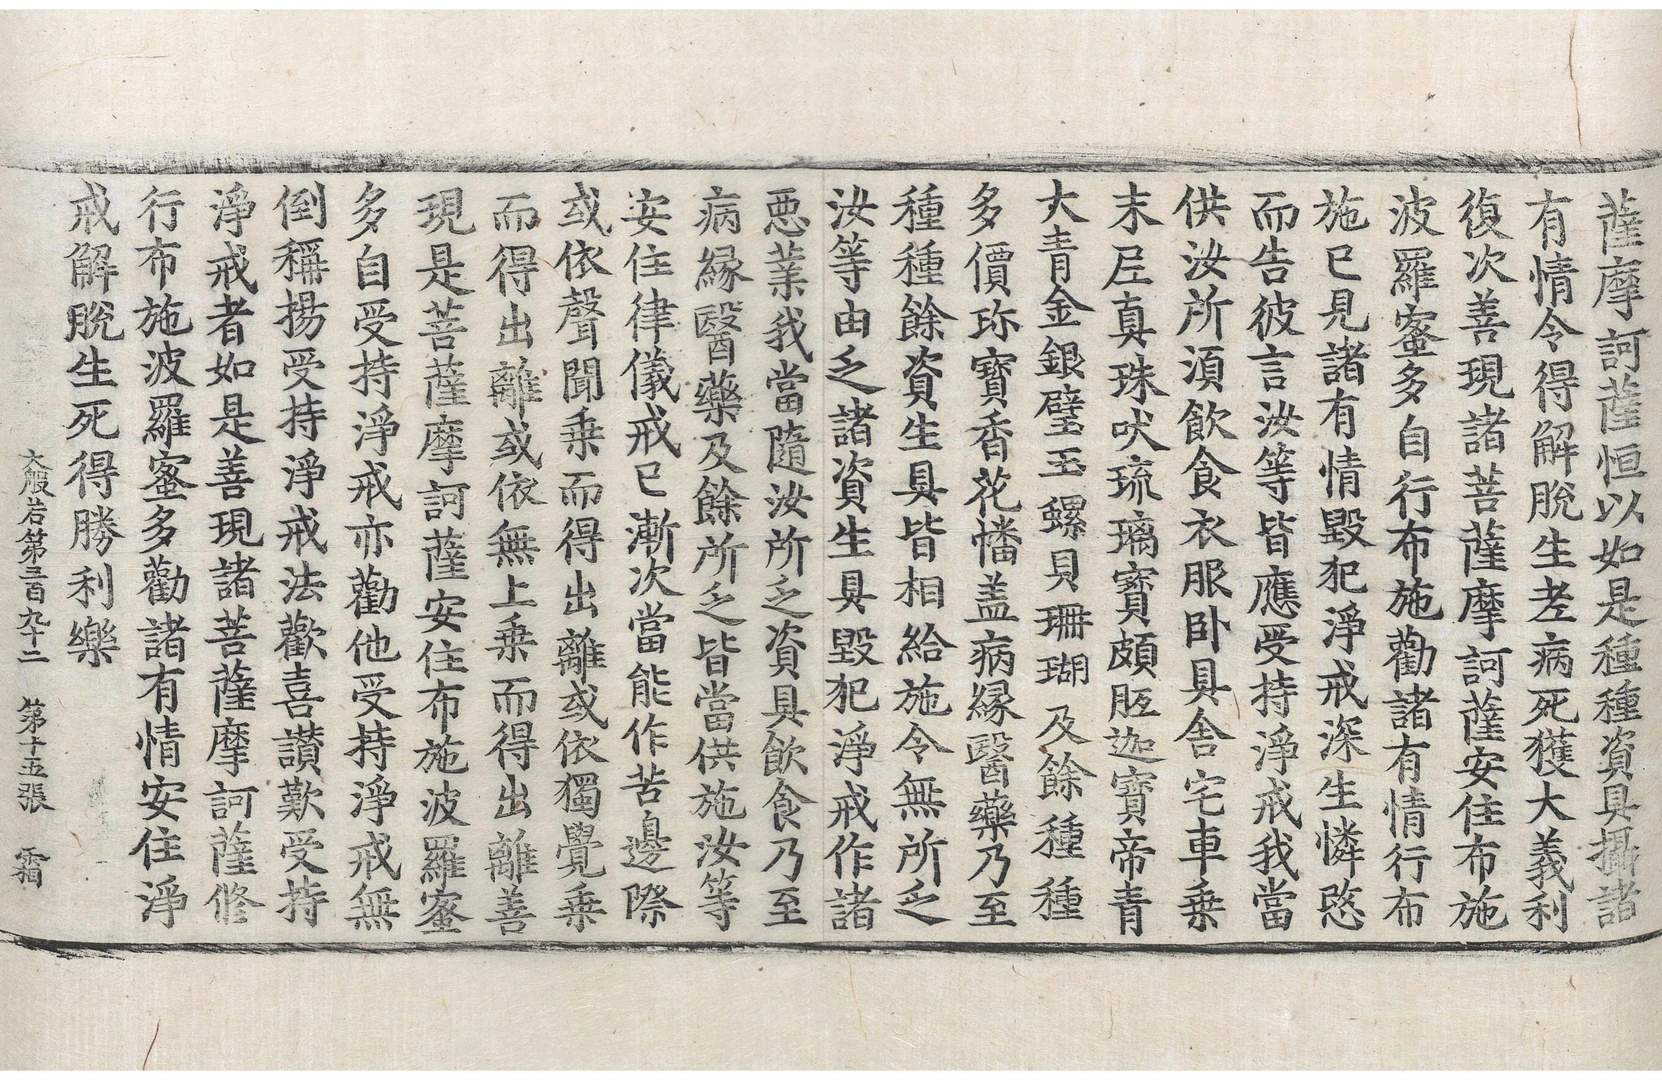 薩摩訶薩恒以如是種種資具攝諸
有情令得解脫生老病死獲大義利
復次善現諸菩薩摩訶薩安住布施
波羅蜜多自行布施勸諸有情行布
施已見諸有情毀犯淨戒深生憐愍
而告彼言汝等皆應受持淨戒我當
供汝所須飲食衣服臥具舍宅車乗
末尼真珠吠琉璃寶頗胝迦寶帝青
大青金銀璧玉螺貝珊瑚及餘種種
多價珎寶香花幡盖病緣醫藥乃至
種種餘資生具皆相給施令無所乏
汝等由乏諸資生具毀犯淨戒作諸
惡業我當隨汝所乏資具飲食乃至
病緣醫藥及餘所乏皆當供施汝等
安住律儀戒已漸次當能作苦邊際
或依聲聞乗而得出離或依獨覺乗
而得出離或依無上乗而得出離善
現是菩薩摩訶薩安住布施波羅蜜
多自受持淨戒亦勸他受持淨戒無
倒稱揚受持淨戒法歡喜讚歎受持
淨戒者如是善現諸菩薩摩訶薩修
行布施波羅蜜多勸諸有情安住淨
戒解脫生死得勝利樂
大般若第三百九十二 第十五張 霜